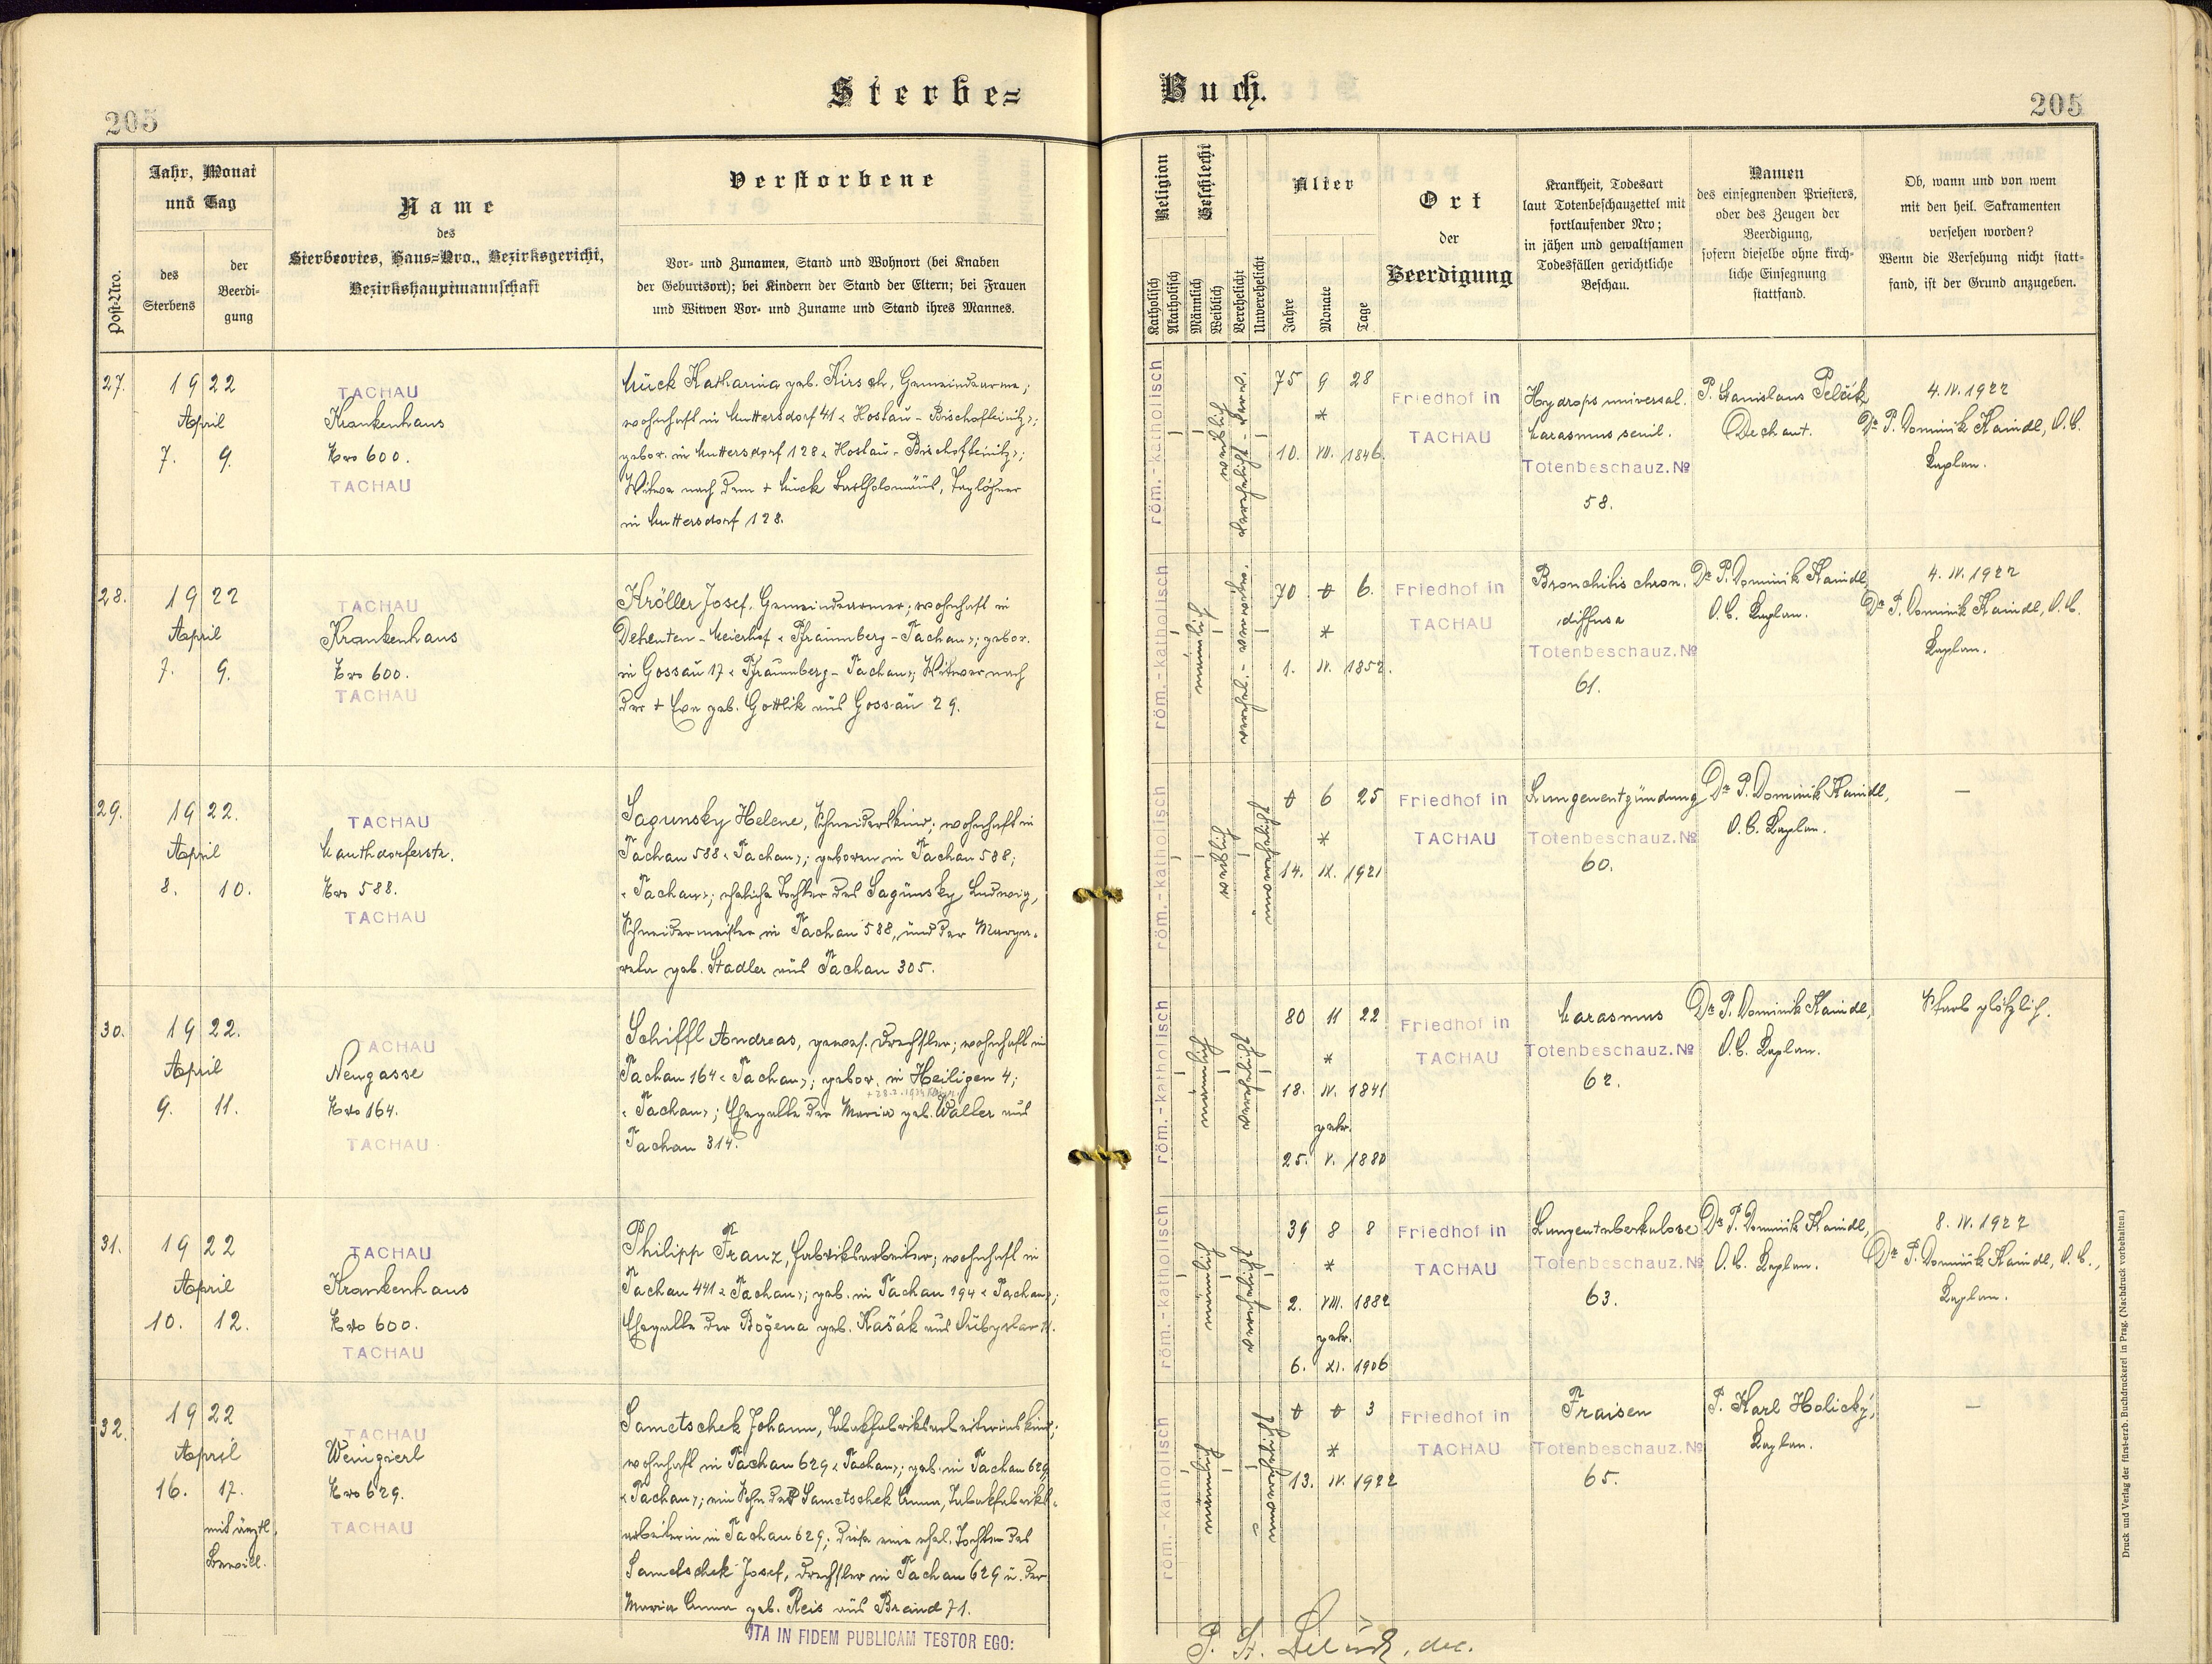 Sterbe=
Buch.
205
205
Post-Nro.
Jahr, Monat
und Tag
des
Sterbens
der
Beerdi-
gung
Name
des
Sterbeortes, Haus=Nro., Bezirksgericht,
Bezirkshauptmannschaft
Verstorbene
Vor- und Zunamen, Stand und Wohnort (bei Knaben
der Geburtsort); bei Kindern der Stand der Eltern; bei Frauen
und Witwen Vor- und Zuname und Stand ihres Mannes.
Religion
Katholisch
Akatholisch
Geschlecht
Männlich
Weiblich
Verehelicht
Unverehelicht
Alter
Jahre
Monate
Tage
Ort
der
Beerdigung
Krankheit, Todesart
laut Totenbeschauzettel mit
fortlaufender Nro;
in jähen und gewaltsamen
Todesfällen gerichtliche
Beschau.
Namen
des einsegnenden Priesters,
oder des Zeugen der
Beerdigung,
sofern dieselbe ohne kirch-
liche Einsegnung
stattfand.
Ob, wann und von wem
mit den heil. Sakramenten
versehen worden?
Wenn die Versehung nicht statt-
fand, ist der Grund anzugeben.
27.
1922
April
7. 9.
TACHAU
Krankenhaus
Nro 600.
TACHAU
Mück Katharina geb. Kirsch, Gemeindearme;
wohnhaft in Muttersdorf 41 < Hostau - Bischofteinitz >;
gebor. in Muttersdorf 128 < Hostau - Bischofteinitz >;
Witwe nach dem + Mück Bartholomäus, Taglöhner
in Muttersdorf 128.
röm.-katholisch
weiblich
verehelicht - verw.
75 9 28
*
10. VII. 1846.
Friedhof in
TACHAU
Hydrops universal.
Marasmus senil.
Totenbeschauz. No
58.
P. Stanislaus Pelčík
Dechant.
4. IV. 1922
Dr. P. Dominik Kaindl, O.C.
Kaplan.
28.
1922
April
7. 9.
TACHAU
Krankenhaus
Nro 600.
TACHAU
Kröller Josef, Gemeindearmer; wohnhaft in
Dehenten - Meierhof < Pfraumberg - Tachau >; gebor.
in Gossau 17 < Pfraumberg - Tachau >; Witwer nach
der + Eva geb. Gottlik aus Gossau 29.
röm.-katholisch
männlich
verehel. - verwitw.
70 0 6.
*
1. IV. 1852.
Friedhof in
TACHAU
Bronchitis chron.
diffusa
Totenbeschauz. No
61.
Dr. P. Dominik Kaindl,
O.C. Kaplan.
4. IV. 1922
Dr. P. Dominik Kaindl, O.C.
Kaplan.
29.
1922.
April
8. 10.
TACHAU
Mauthdorferstr.
Nro 588.
TACHAU
Sagunsky Helene, Schneiderskind; wohnhaft in
Tachau 588 < Tachau >; geboren in Tachau 588;
< Tachau >; eheliche Tochter des Sagunsky Ludwig,
Schneidermeister in Tachau 588, und der Marga-
rete geb. Stadler aus Tachau 305.
röm.-katholisch
weiblich
unverehelicht
0 6 25
*
14. IX. 1921
Friedhof in
TACHAU
Lungenentzündung
Totenbeschauz. No
60.
Dr. P. Dominik Kaindl,
O.C. Kaplan.
—
30.
1922.
April
9. 11.
TACHAU
Neugasse
Nro 164.
TACHAU
Schiffl Andreas, gewes. Drechsler; wohnhaft in
Tachau 164 < Tachau >; gebor. in Heiligen 4;
< Tachau >; Ehegatte der Maria geb. Waller aus
Tachau 314.
röm.-katholisch
männlich
verehelicht
80 11 22
*
18. IV. 1841
getr.
25. V. 1880
Friedhof in
TACHAU
Marasmus
Totenbeschauz. No
62.
Dr. P. Dominik Kaindl,
O.C. Kaplan.
Starb plötzlich.
31.
1922
April
10. 12.
TACHAU
Krankenhaus
Nro 600.
TACHAU
Philipp Franz, Fabriksarbeiter; wohnhaft in
Tachau 441 < Tachau >; geb. in Tachau 194 < Tachau >;
Ehegatte der Božena geb. Kašák aus
röm.-katholisch
männlich
verehelicht
39 8 8
*
2. VIII. 1882
getr.
6. XI. 1906
Friedhof in
TACHAU
Lungentuberkulose
Totenbeschauz. No
63.
Dr. P. Dominik Kaindl,
O.C. Kaplan.
8. IV. 1922
Dr. P. Dominik Kaindl, O.C.,
Kaplan.
32.
1922
April
16. 17.
mit ärztl.
Bewill.
TACHAU
Weingierl
Nro 629.
TACHAU
Sametschek Johann, Tabakfabriksarbeiterinskind;
wohnhaft in Tachau 629 < Tachau >; geb. in Tachau 629
< Tachau >; ein Sohn der Sametschek Anna, Tabakfabriks-
arbeiterin in Tachau 629; diese eine ehel. Tochter des
Sametschek Josef, Drechsler in Tachau 629 u. der
Maria Anna geb. Reis aus Brand 71.
röm.-katholisch
männlich
unverehelicht
0 0 3
*
13. IV. 1922
Friedhof in
TACHAU
Fraisen
Totenbeschauz. No
65.
P. Karl Holický,
Kaplan.
—
ITA IN FIDEM PUBLICAM TESTOR EGO:
P. St. Pelčík, dec.
Druck und Verlag der fürst-erzb. Buchdruckerei in Prag. (Nachdruck vorbehalten.)